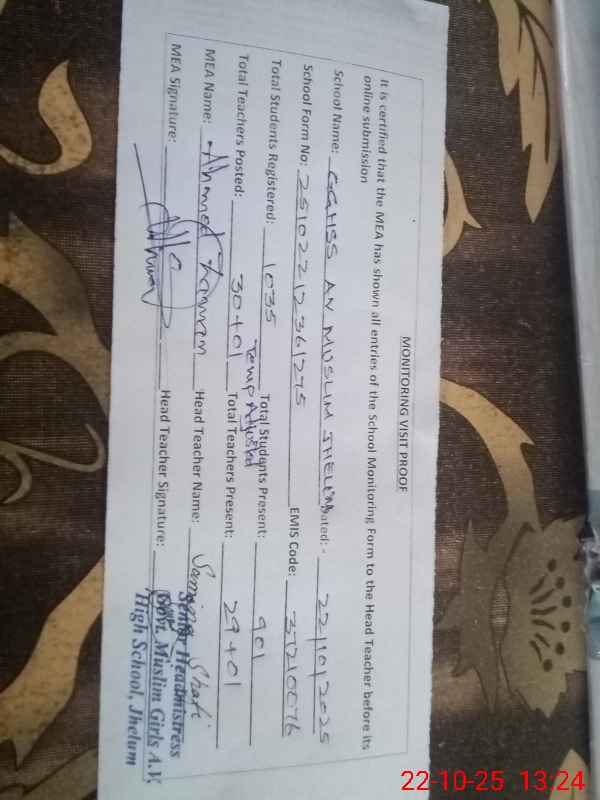 MONITORING VISIT PROOF
It is certified that the MEA has shown all entries of the School Monitoring Form to the Head Teacher before its
online submission
School Name: GGHSS AV MUSLIM JHELUM Dated: - 22/10/2025
School Form No: 251022122361275 EMIS Code: 37210076
Total Students Registered: 1035 Total Students Present: 901
Temp Adjusted
Total Teachers Posted: 30+01 Total Teachers Present: 29+01
MEA Name: Ahmed Head Teacher Name: Samina Shafi
MEA Signature: Head Teacher Signature:
Senior Headmistress
Govt. Muslim Girls A.V,
High School, Jhelum
22-10-25 13:24